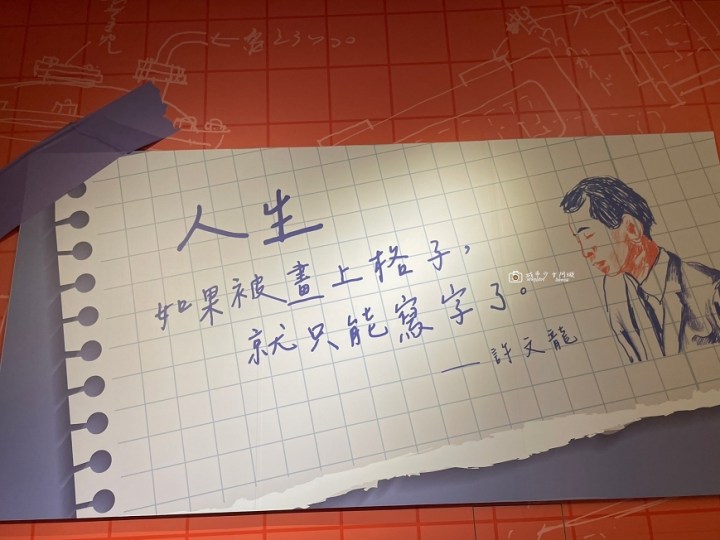 人生
如果被畫上格子,
就只能寫字了。
— 許文龍